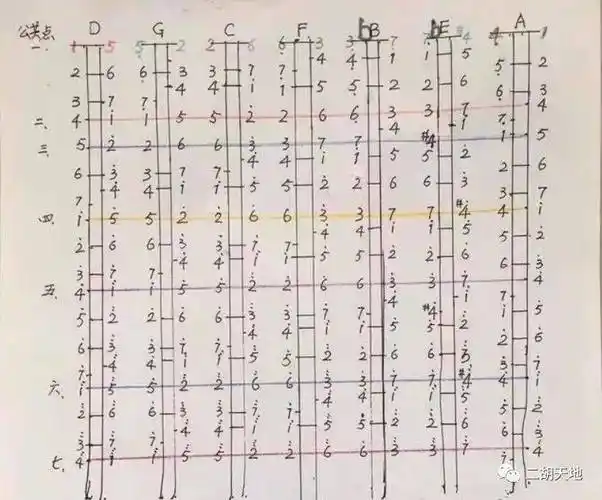 公共点 D G C F bB bE A
一、 1 5 5 2 2 6 6 3 3 7 4 1
4 4 1 1 5
2 6 6 3 3 7 7 5 2
4 4 1 1 5 5 2 2 6
3 7 7 6 3
二、 4 1 1 5 5 2 2 6 6 3 3 7 7 4
4 1
三、 5 2 2 6 6 3 3 7 7 #4 1 5
4 4 1 1 5 5 2
6 3 3 7 7 2 6
4 4 1 1 5 5 2 2 6 6 3
7 3 7
四、 1 5 5 2 2 6 6 3 3 7 7 #4 4 1
4 4 1 1 5 5 2
2 6 6 3 3 7 7
4 4 1 1 5 5 2 2 6 6 3
3 7 7 4
五、 4 1 1 5 5 2 2 6 6 3 3 7
4 1 7
5 2 2 6 6 3 3 7 7 #4 1 5
4 4 1 1 5 5 2
6 3 3 7 7 2 6
4 4 1 1 5 5 2 2 6 6 3
7 3 7
六、 1 5 5 2 2 6 6 3 3 7 7 #4 4 1
4 4 1 1 5
2 6 6 3 3 7 7 5 2
4 4 1 1 5 5 2 2 6
3 7 7 6 3
七、 4 1 1 5 5 2 2 6 6 3 3 7 4
7
二胡天地